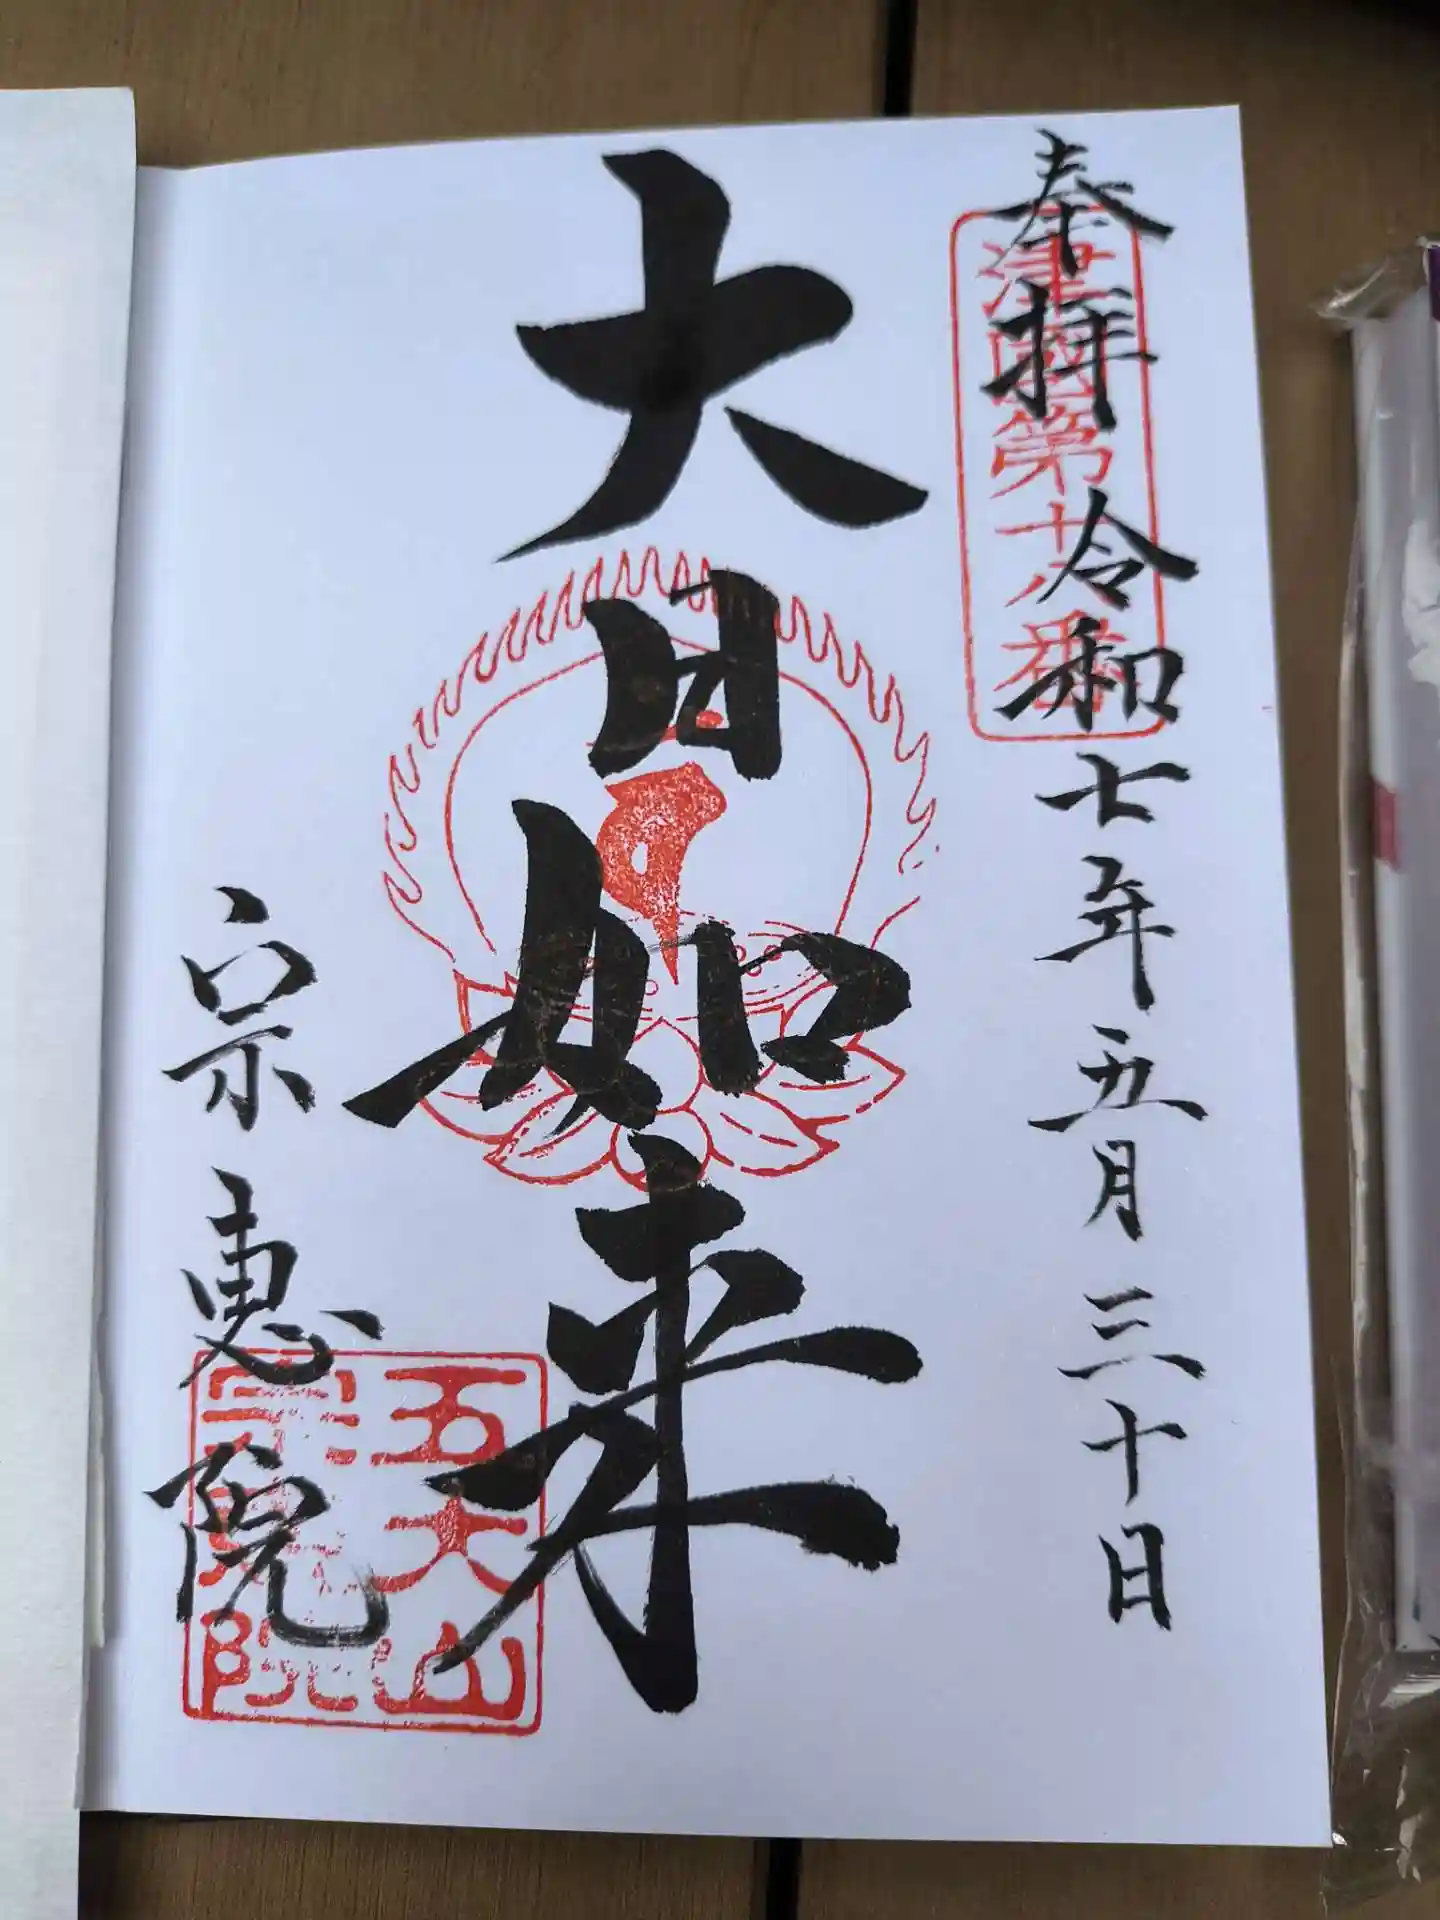 奉拝 令和七年五月三十日
津國第十八番
大日如来
宗恵院
五大山
宗恵院